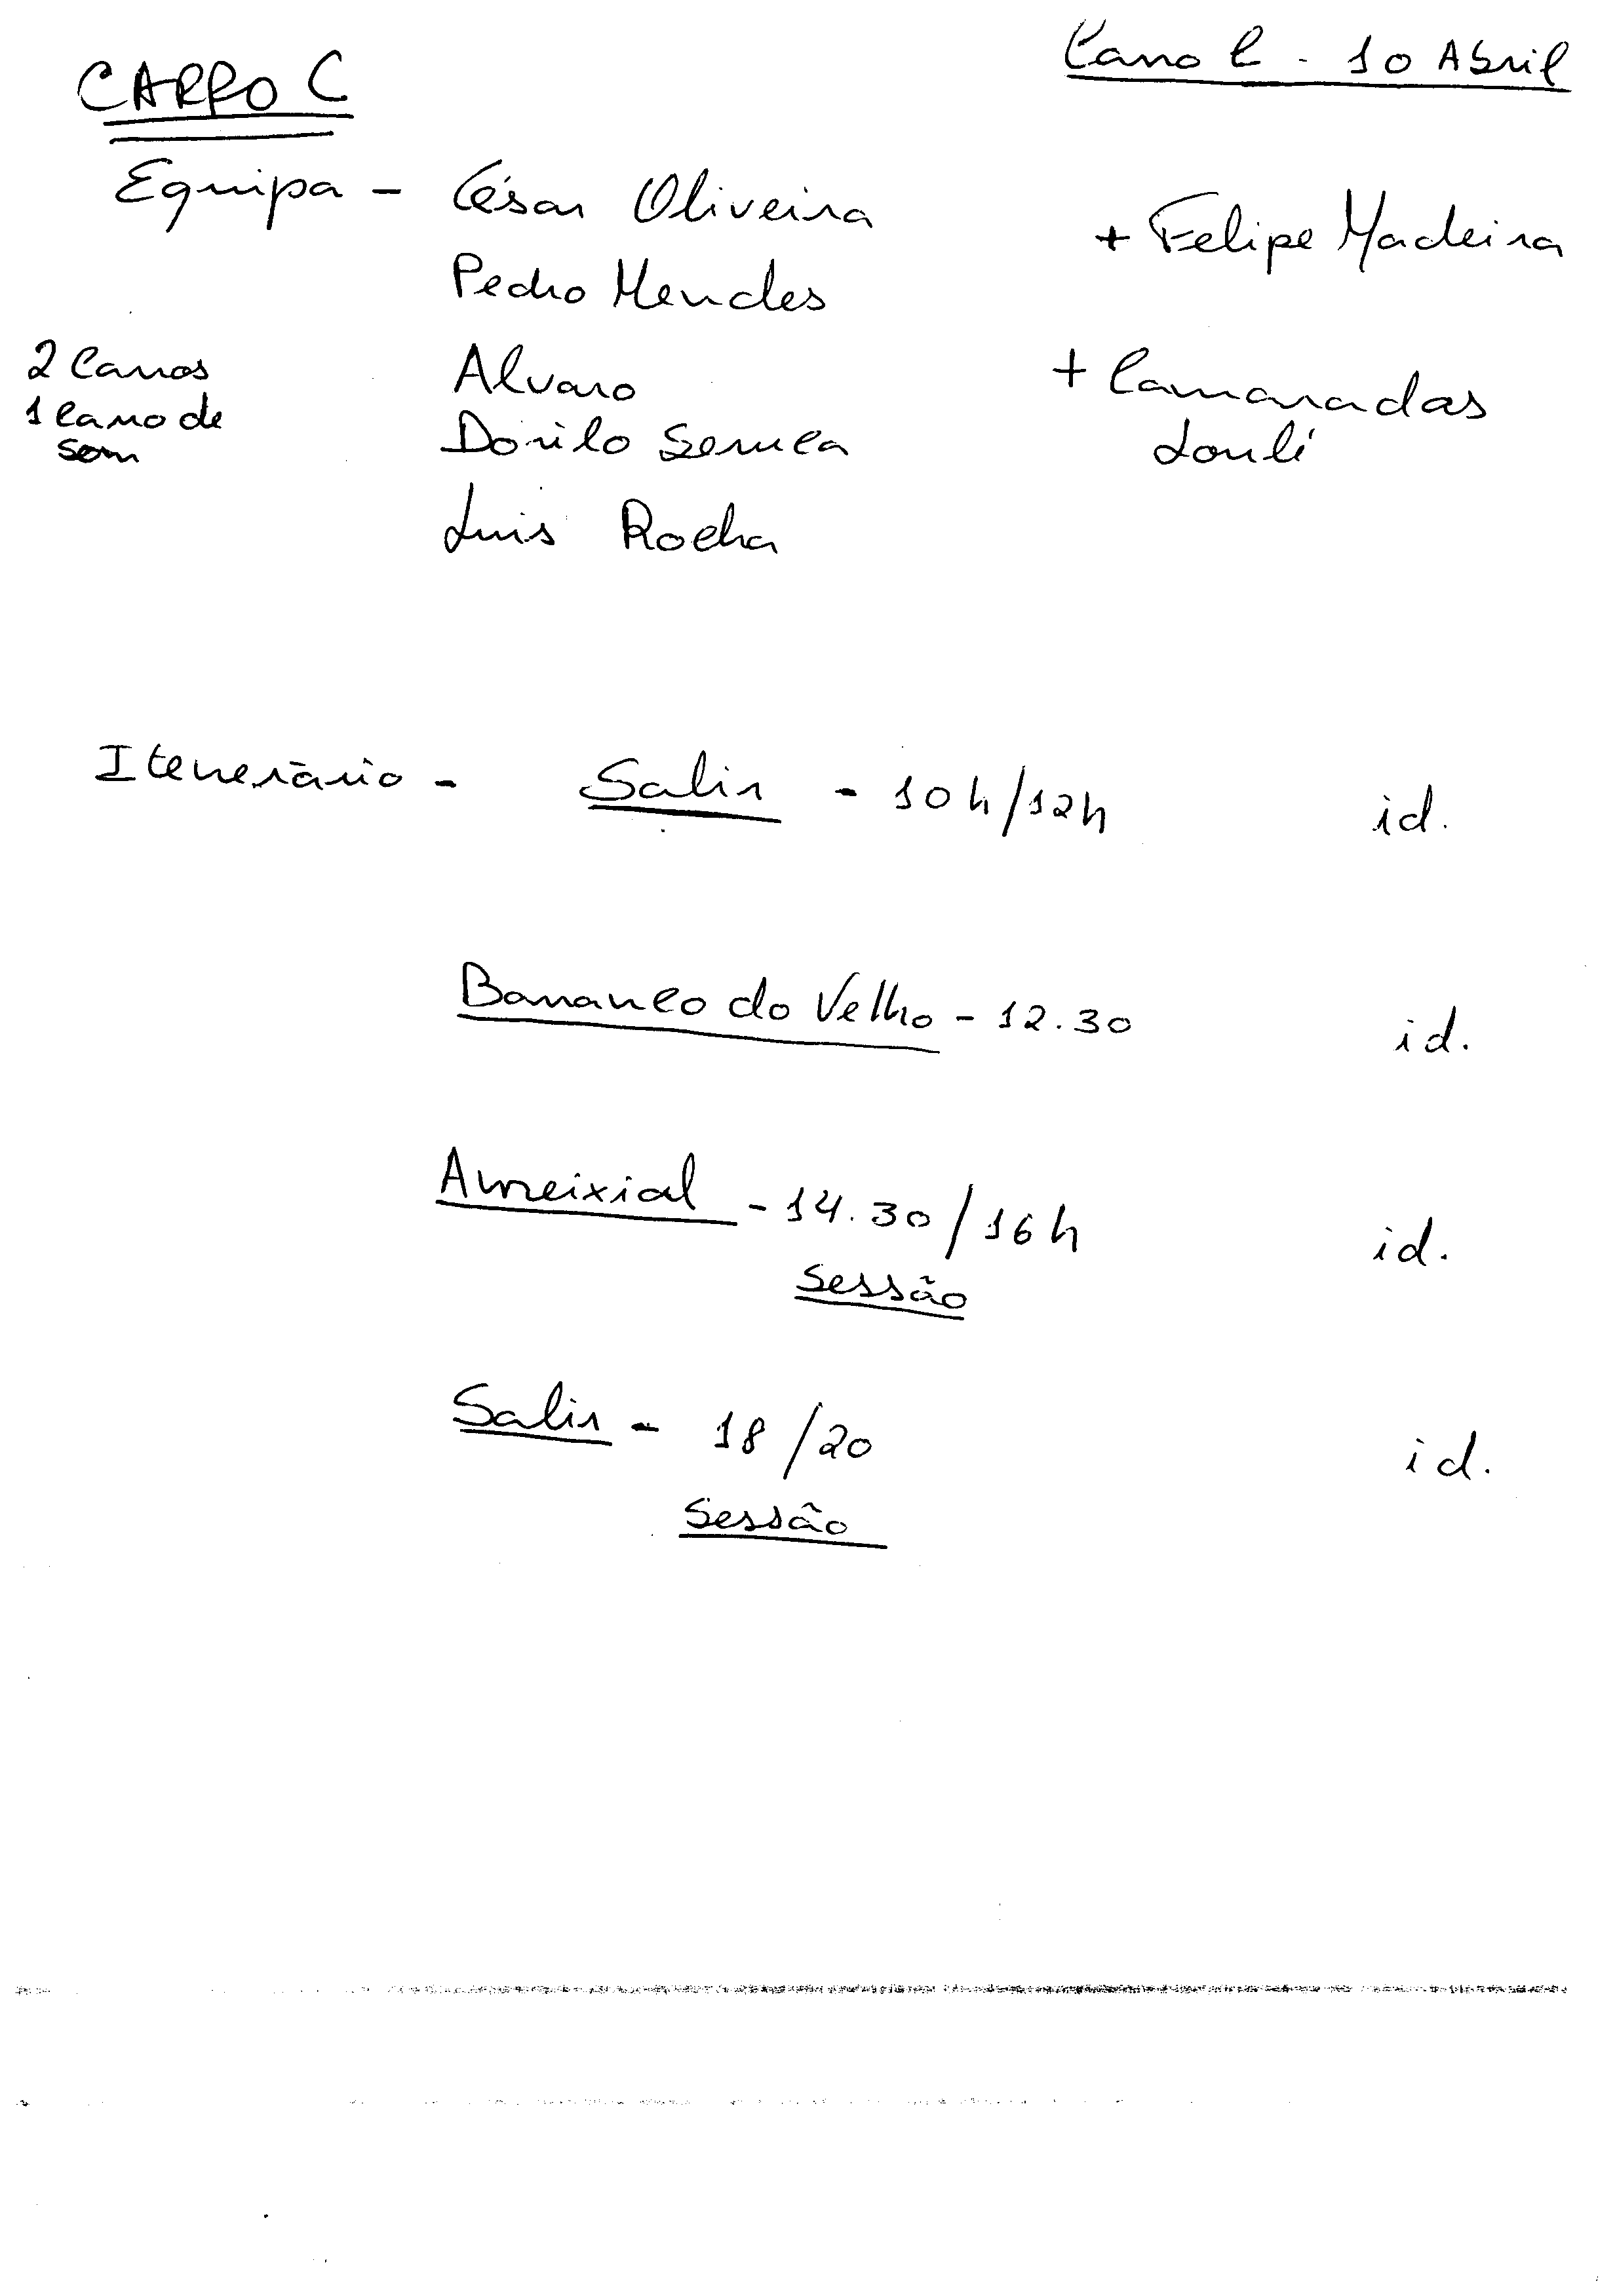 CARRO C
Carro C - 10 Abril
Equipa - César Oliveira
+ Felipe Madeira
Pedro Mendes
2 Carros
Alvaro
+ Camaradas
1 carro de
Dorilo Seruca
Loulé
som
Luis Rocha
Itenerário - Salir - 10h/12h id.
Barranco do Velho - 12.30 id.
Ameixial - 14.30/16h id.
Sessão
Salir - 18/20 id.
Sessão